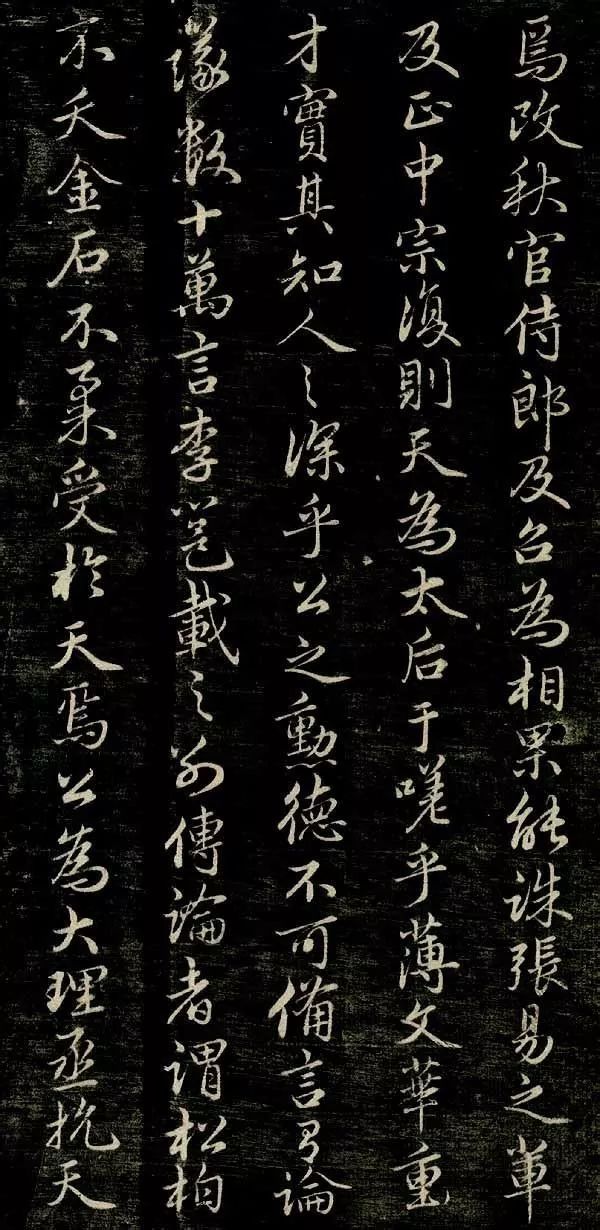 焉改秋官侍郎及召為相果能誅張易之軰
及正中宗復則天為太后于嗟乎薄文華重
才實其知人之深乎公之勳德不可備言有論
議數十萬言李邕載之別傳論者謂松柏
不夭金石不柔受於天焉公為大理丞抗天